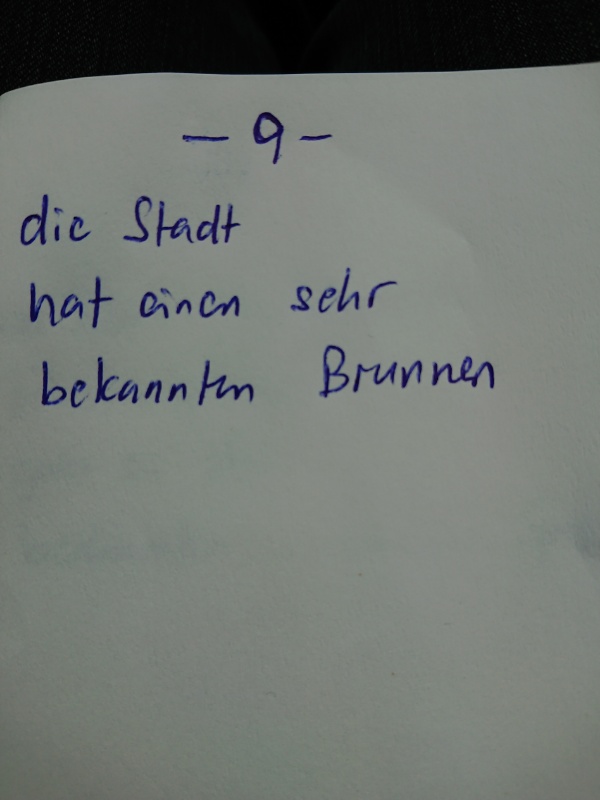 - 9 -
die Stadt
hat einen sehr
bekannten Brunnen